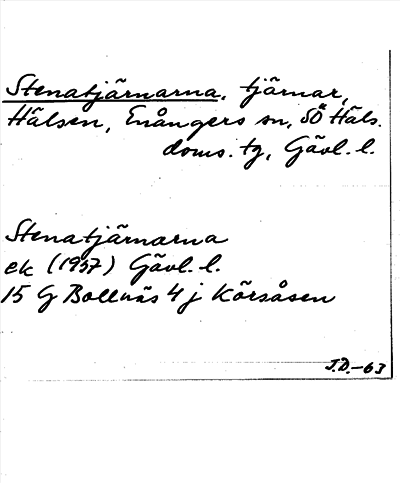 Stenatjärnarna, tjärnar,
Hålsen, Enångers sn, SÖ Häls.
doms. tg, Gävl. l.
Stenatjärnarna
ek (1957) Gävl. l.
15 G Bollnäs 4 j Körsåsen
J.D.-63